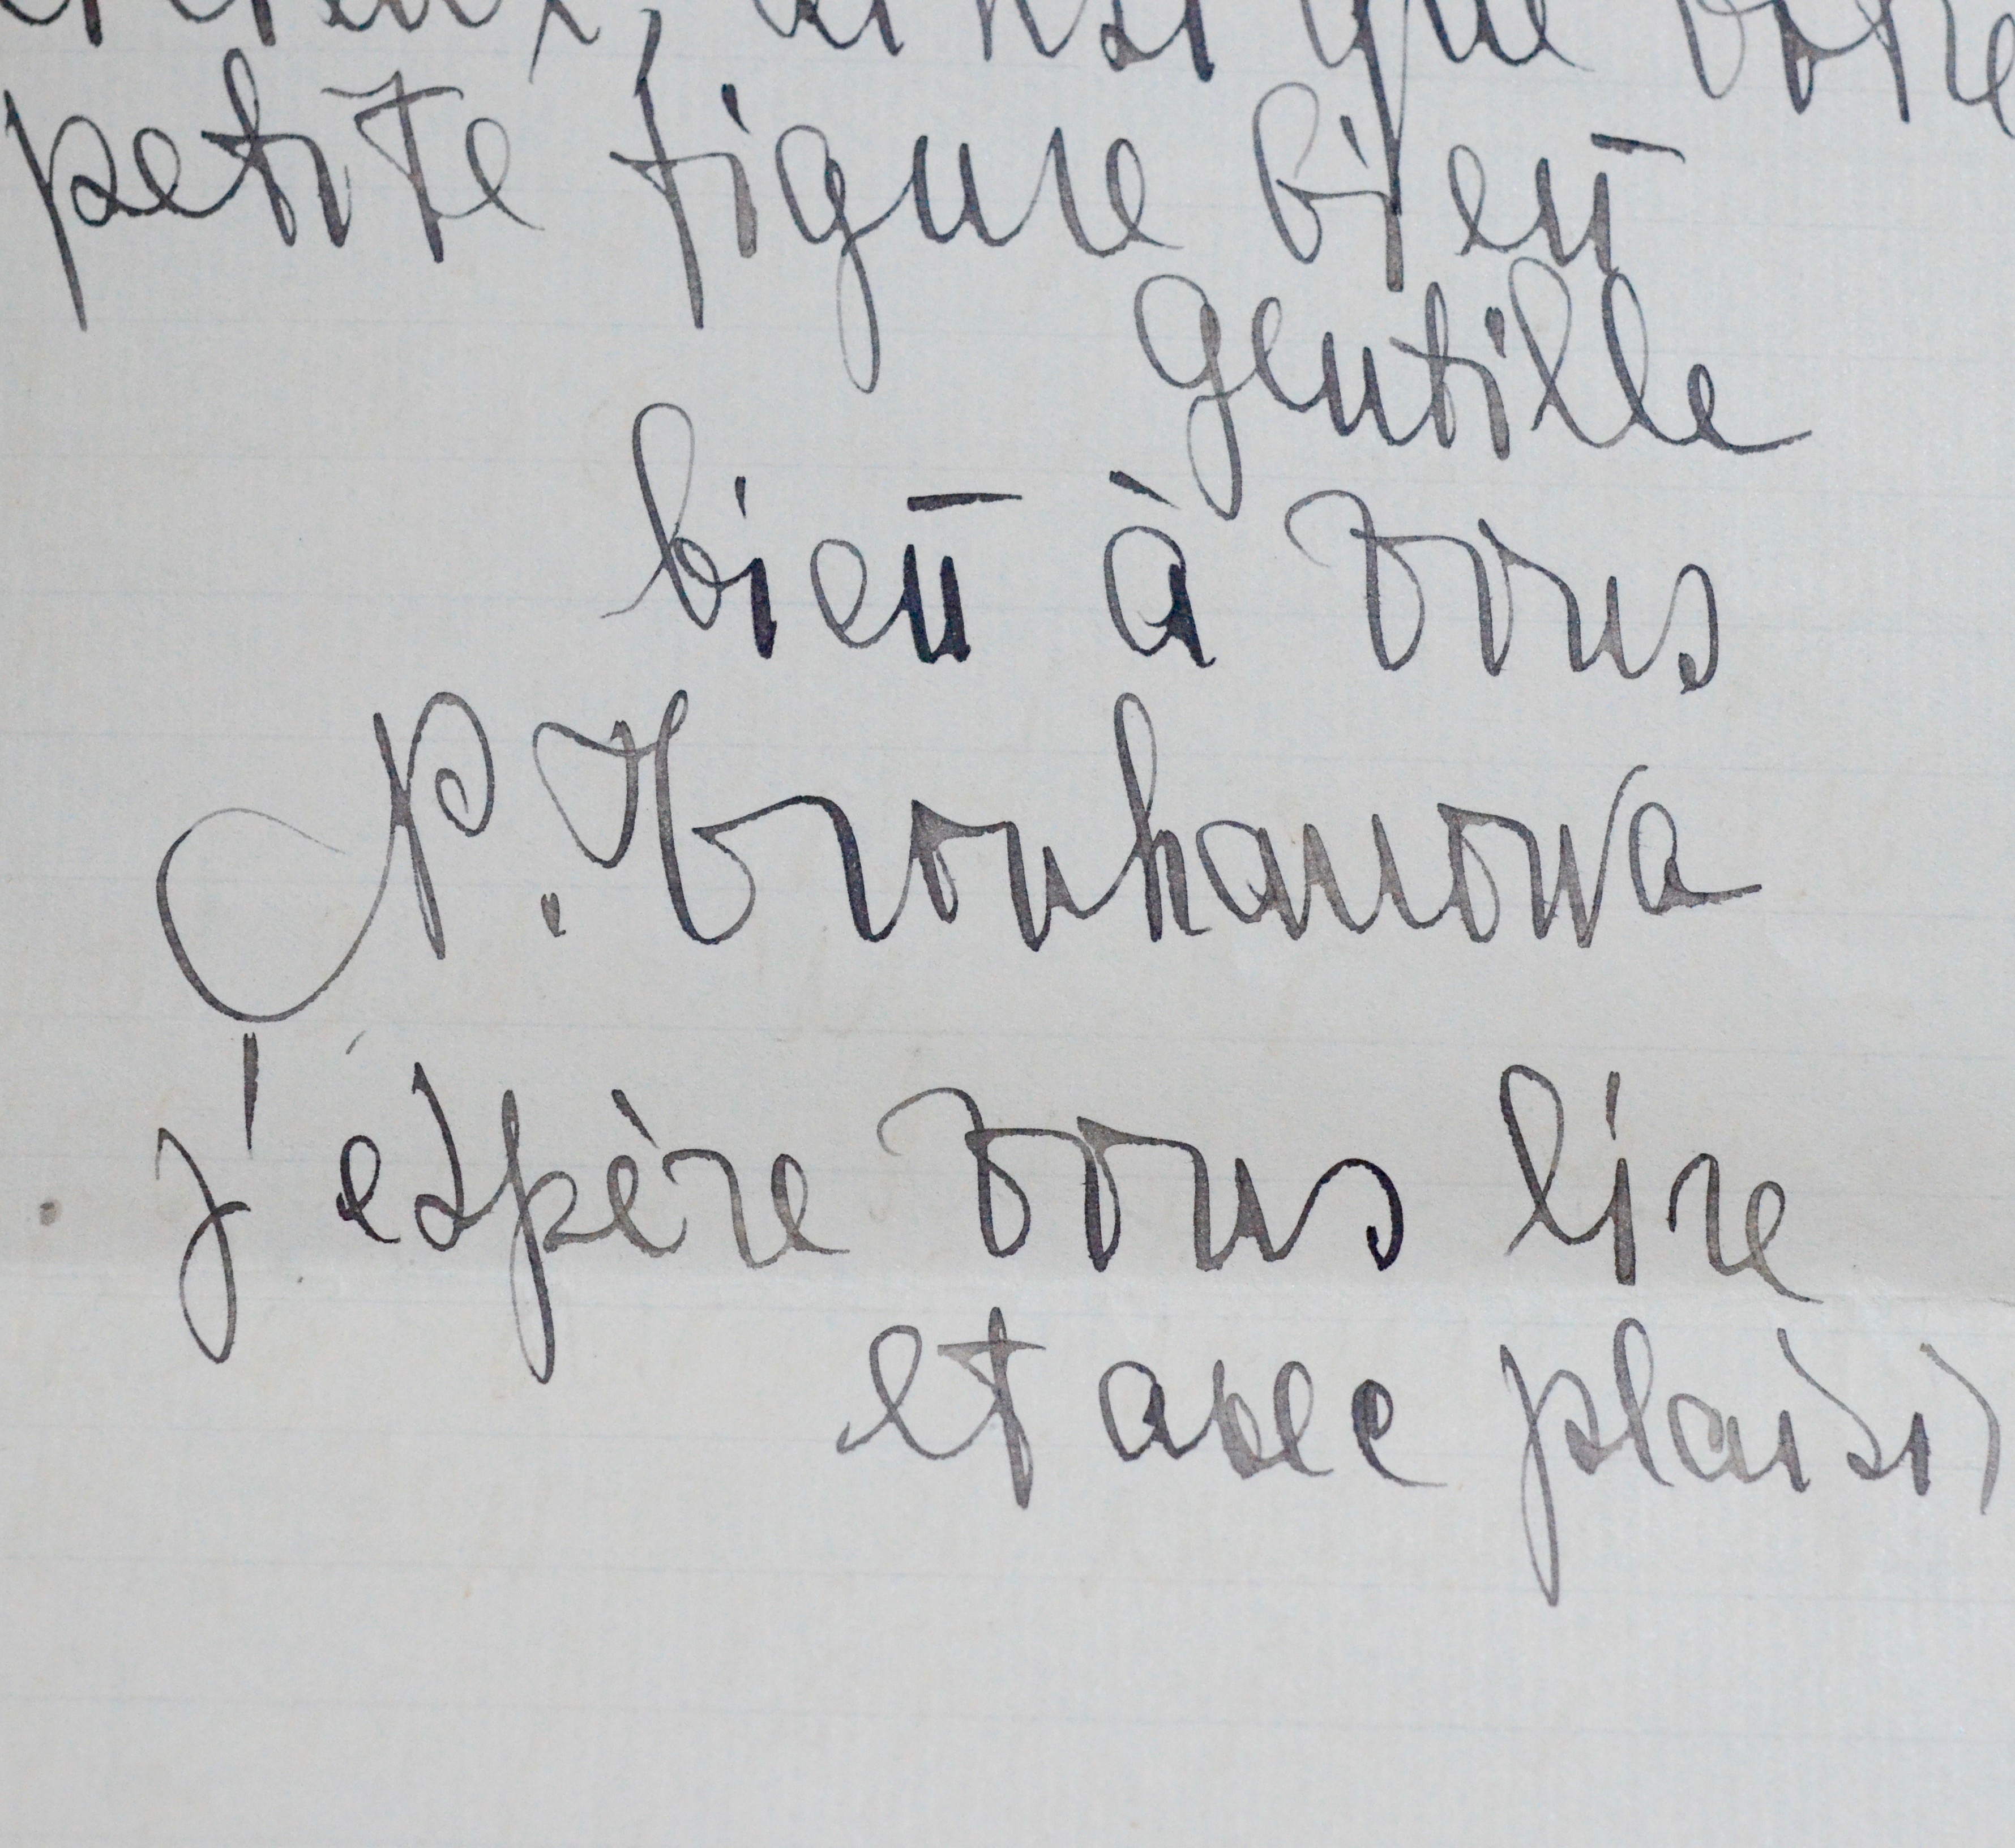 ainsi que votre
petite figure bien
gentille
bien à vous
N. Trouhanowa
j'espère vous lire
et avec plaisir